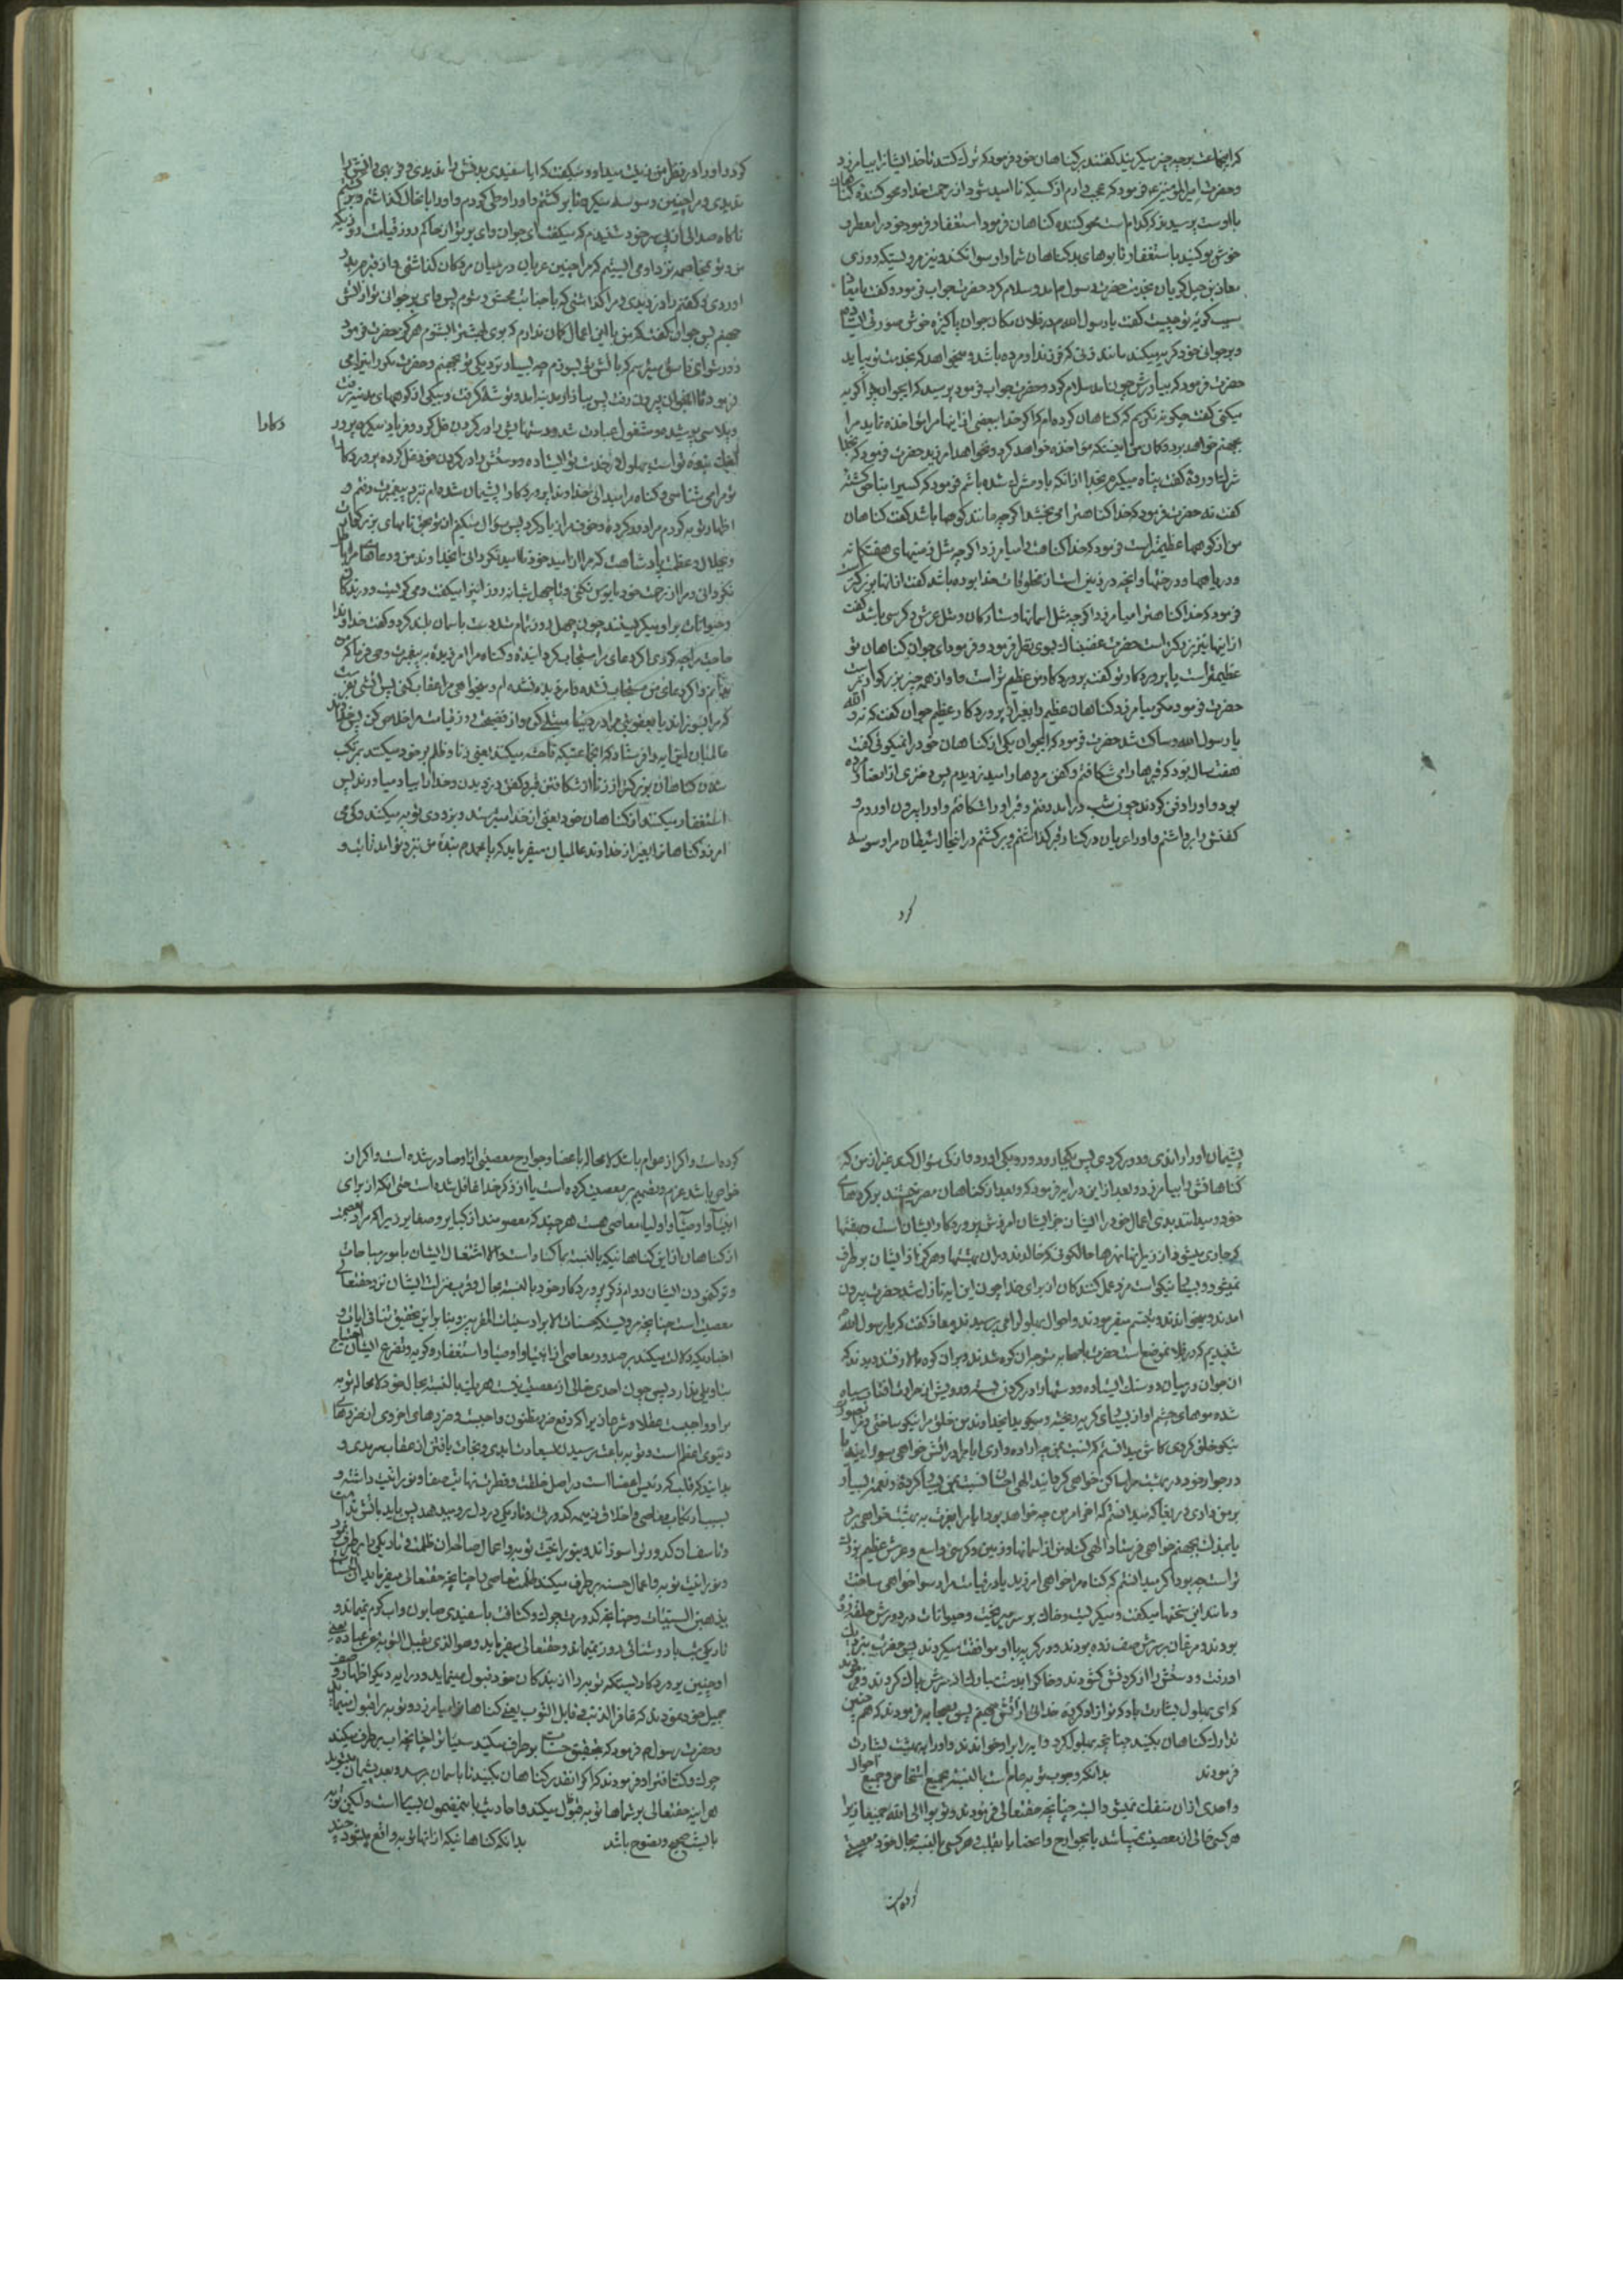 که اینجماعت بر چه چیز میگریند گفتند بر گناهان خود فرمود که ترک کنند تا خدا ایشانرا بیامرزد
و حضرت امیرالمؤمنین ع فرمود که عجب دارم از کسیکه ناامید شود از رحمت خدا و محو کننده گناهان
با اوست پرسیدند که کدام است محو کننده گناهان فرمود استغفار و فرمود خود را معطر و
خوش بو کنید باستغفار تا بوهای بد گناهان شما را رسوا نکند و نیز مرویستکه روزی
معاذ بن جبل گریان بخدمت حضرت رسول ص امد و سلام کرد حضرت جواب فرمود و گفت یا معاذ
سبب گریه تو چیست گفت یا رسول الله ص در فلان مکان جوان پاکیزه خوش صورتی ایستاده
و بر جوانی خود گریه میکند مانند زنی که فرزند او مرده باشد و میخواهد که بخدمت تو بیاید
حضرت فرمود که بیاورش چون امد سلام کرد و حضرت جواب فرمود پرسید که ایجوان چرا گریه
میکنی گفت چگونه نگریم که گناهان کرده‌ام که اگر خدا ببعضی از اینها مرا مؤاخذه نماید مرا
بجهنم خواهد برد و گمان من اینستکه مؤاخذه خواهد کرد و نخواهد امرزید حضرت فرمود که بخدا
شرک اورده گفت پناه میگیرم بخدا از انکه باو مشرک شده باشم فرمود که کسیرا بناحق کشته
گفت نه حضرت فرمود که خدا گناهترا می بخشد اگر چه مانند کوهها باشد گفت گناهان
من از کوهها عظیمتر است فرمود که خدا گناهت را بیامرزد اگر چه مثل زمینهای هفتگانه
و دریاها و درختها و انچه در زمین است از مخلوقات خدا بوده باشد گفت از انها بزرگتر است
فرمود که خدا گناهترا میامرزد اگر چه مثل اسمانها و ستارگان و مثل عرش و کرسی باشد گفت
از اینها نیز بزرگتر است حضرت غضبناک بسوی او نظر فرمود و فرمود ای جوان گناهان تو
عظیمتر است یا پروردگار تو گفت پروردگار من عظیم تر است و او از همه چیز بزرگوارتر است
حضرت فرمود مگر میامرزد گناهان عظیم را بغیر از پروردگار عظیم جوان گفت که نه والله
یا رسول الله و ساکت شد حضرت فرمود که ایجوان یکی از گناهان خود را نمیگوئی گفت
هفت سال بود که قبرها را می شکافتم و کفن مردها را میدزدیدم پس دختری از انصار مرده
بود و او را دفن کردند چون شب در امد رفتم و قبر او را شکافتم و او را بیرون اوردم و
کفنش را برداشتم و او را عریان در کنار قبر گذاشتم و برگشتم در انحال شیطان مرا وسوسه
کرد
کرد و او را در نظر من زینت میداد و میگفت که ایا سفیدی بدنش را ندیدی و فربهی رانش را
ندیدی و مرا چنین وسوسه میکرد تا برگشتم و با او وطی کردم و او را بانحال گذاشتم و برگشتم
ناگاه صدائی از پی سر خود شنیدم که میگفت ای جوان وای بر تو از حاکم روز قیامت روزیکه
من و تو بمخاصمه نزد او می ایستیم که مرا چنین عریان در میان مردگان گذاشتی و از قبرم بدر
اوردی و کفنم را دزدیدی و مرا گذاشتی که با جنابت محشور شوم پس وای بر جوانی تو از اتش
جهنم پس جوان گفت که من با این اعمال گمان ندارم که بوی بهشترا بشنوم هرگز حضرت فرمود
دور شو ای فاسق میترسم که باتش تو بسوزم چه بسیار نزدیکی تو بجهنم و حضرت مکرر اینرا می
فرمود تا انجوان بیرون رفت پس ببازار مدینه امد و توشه گرفت و بیکی از کوههای مدینه رفت
و پلاسی پوشید و مشغول عبادت شد و دستهایش را در گردن غل کرد و فریاد میکرد پرورد
کارا
اینک بنده تو است بهلول در خدمت تو ایستاده و دستش را در گردن خود غل کرده پروردگارا
تو مرا می شناسی و گناه مرا میدانی خداوندا پروردگارا پشیمان شده‌ام نزد پیغمبرت رفتم و
اظهار توبه کردم مرا دور کرده و خوف مرا زیاد کرد پس سؤال میکنم از تو بحق نامهای بزرگوارت
و بجلال و عظمت پادشاهیت که مرا از امید خود ناامید نگردانی ای خداوند من و دعای مرا باطل
نگردانی و مرا از رحمت خود مایوس نکنی و تا چهل شبانه روز اینرا میگفت و می گریست و درندگان
و حیوانات بر او میگریستند چون چهل روز تمام شد دست باسمان بلند کرد و گفت خداوندا
حاجت مرا چه کردی اگر دعای مرا مستجاب گردانیده و گناه مرا امرزیده به پیغمبرت وحی فرما که من
بدانم و اگر دعای من مستجاب نشده و امرزیده نشده‌ام و میخواهی مرا عقاب کنی پس اتشی بفرست
که مرا بسوزاند یا بعقوبتی مرا در دنیا مبتلا کن و از فضیحت روز قیامت مرا خلاص کن پس خداوند
عالمیان این ایه را فرستاد که انجماعتیکه فاحشه میکنند یعنی زنا و ظلم بر خود میکنند بمرتکب
شدن گناهان بزرگتر از زنا از شکافتن قبر و کفن دزدیدن و خدا را بیاد میاورند پس
استغفار میکنند از گناهان خود یعنی از خدا میترسند و بزودی توبه میکنند و کی می
امرزد گناهانرا بغیر از خداوند عالمیان میفرماید که یا محمد ص بنده من بنزد تو امد تائب و
پشیمان او را راندی و دور کردی پس بکجا رود و رو بکی اورد و از کی سؤال کند غیر از من که
گناهانش را بیامرزد و بعد از این در ایه فرمود که و بعد از گناهان مصر نیستند بر کردهای
خود و میدانند بدی اعمال خود را ایشان جزای ایشان امرزش پروردگار ایشان است و بهشتها
که جاری میشود از زیر انها نهرها حالکونی که خالدند در ان بهشتها و هرگز از ایشان بر طرف
نمیشود و بسیار نیکو است مزد عمل کنندگان از برای خدا چون این ایه نازل شد حضرت بیرون
امدند و میخواندند و تبسم میفرمودند و احوال بهلول را می پرسیدند معاذ گفت که یا رسول الله ص
شنیدیم که در فلان موضع است حضرت با صحابه متوجه ان کوه شدند و بر ان کوه بالا رفتند دیدند که
ان جوان در میان دو سنک ایستاده و دستها را در گردن بسته و رویش از حرارت افتاب سیاه
شده موهای چشم او از بسیاری گریه ریخته و میگوید ای خداوند من خلق مرا نیکو ساختی و مرا بصورت
نیکو خلق کردی کاش میدانستم که نسبت بمن چه اراده داری ایا مرا در اتش خواهی سوزانید یا
در جوار خود در بهشت مرا ساکن خواهی گردانید الهی احسان نسبت بمن بسیار کرده و نعمت بسیار
بر من داری دریغا که میدانستم که اخر امر من چه خواهد بود ایا مرا بعزت به بهشت خواهی برد
یا بمذلت بجهنم خواهی فرستاد الهی گناه من از اسمانها و زمین و کرسی واسع و عرش عظیم بزرگ
تر است چه بود اگر میدانستم که گناه مرا خواهی امرزید یا در قیامت مرا رسوا خواهی ساخت
و مانند این سخنها میگفت و میگریست و خاک بر سر میریخت و حیوانات در دورش حلقه زده
بودند و مرغان بر سرش صف زده بودند و در گریه با او موافقت میکردند پس حضرت بنزدیک
او رفت و دستش را از گردنش گشودند و خاک را بدست مبارک از سرش پاک کردند و فرمودند
که ای بهلول بشارت باد که تو ازاد کرده خدائی از اتش جهنم پس بصحابه فرمودند که همچنین
تدارک گناهان بکنید چنانچه بهلول کرد و ایه را بر او خواندند و او را به بهشت بشارت
فرمودند بدانکه وجوب توبه عام است بالنسبه بجمیع اشخاص و جمیع احوال
و احدی از ان منفک نمیشود البته چنانچه حقتعالی فرمودند و توبوا الی الله جمیعا زیرا
هر کسی خالی از معصیت نمیباشد یا بجوارح و اعضا یا بقلب و هر کسی بالنسبه بحال خود معصیتی
کرده است
کرده است و اگر از عوام باشد لا محاله باعضا و جوارح معصیتی از او صادر شده است و اگر ان
خواص باشد عزم و تصمیم بر معصیت کرده است یا از ذکر خدا غافل شده است حتی انکه از برای
انبیا و اوصیا و اولیا معاصی هست هر چند که معصومند از کبایر و صغایر زیرا که مراد بعصمت
از گناهان از این گناهانیکه بالنسبه بما گناه است و الا اشتغال ایشان بامور مباحات
و ترک نمودن ایشان دوام ذکر پروردگار خود بالنسبه بحال و قرب منزلت ایشان نزد حقتعالی
معصیت است چنانچه مرویست که حسنات الابرار سیئات المقربین و بنا بر این تحقیق تنافی ایات و
اخباریکه دلالت میکند بر صدور معاصی از انبیا و اوصیا و استغفار و گریه و تضرع ایشان احتیاج
بتاویلی ندارد پس چون احدی خالی از معصیت نیست هر یک بالنسبه بحال خود لا محاله توبه
بر او واجبست عقلا و شرعا زیرا که دفع ضرر مظنون واجبست و ضررهای اخروی از ضررهای
دنیوی اعظم است و توبه باعث رسیدن بسعادت ابدی و نجات یافتن از عقاب سرمدی و
بدانید که قلب که رئیس اعضا است در اصل خلقت و فطرت نهایت صفا و نورانیت داشته و
بسبب ارتکاب معاصی و اخلاق ذمیمه کدورتی و تاریکی در دل رو میدهد پس باید باتش ندامت
و تاسف ان کدورت را سوزاند و بنورانیت توبه و اعمال صالحه ان ظلمت و تاریکی را بر طرف نمود
و نورانیت توبه و اعمال حسنه بر طرف میکند ظلمت معاصی را چنانچه حقتعالی میفرماید ان الحسنات
یذهبن السیئات و چنانچه کدورت چرک و کثافت با سفیدی صابون و اب گرم نمیماند و
تاریکی شب با روشنائی روز نمیماند و حقتعالی میفرماید و هو الذی یقبل التوبة عن عباده یعنی
او چنین پروردگاریستکه توبه را از بندگان خود قبول مینماید و در ایه دیگر اظهار وصف
جمیل خود نمودند که غافر الذنب و قابل التوب یعنی گناهانرا میامرزد و توبه را قبول مینماید
و حضرت رسول ص فرمود که بتحقیق حسنات بر طرف میکند سیئات را چنانچه اب بر طرف میکند
چرک و کثافت را و فرمودند که اگر انقدر گناهان بکنید تا باسمان برسد و بعد پشیمان شوید
هر اینه حقتعالی بر شماها توبه قبول میکند و احادیث باینمضمون بسیار است و لیکن توبه
بایست صحیح و نصوح باشد بدانکه گناهانیکه از انها توبه واقع میشود چند